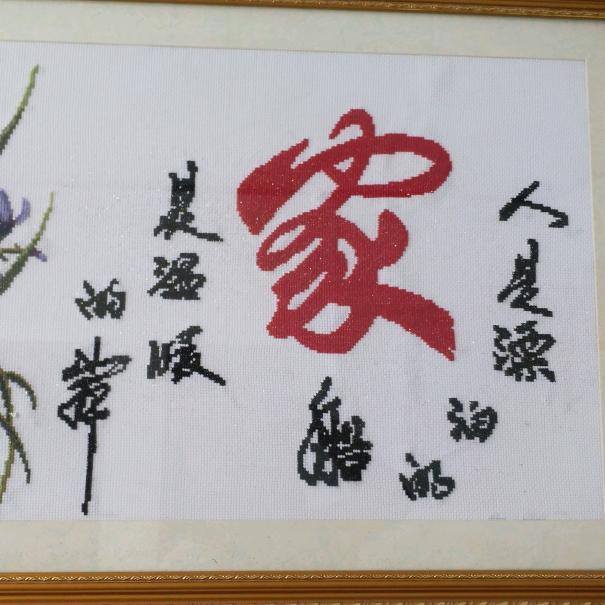 人是漂泊的船
家
是温暖
的岸